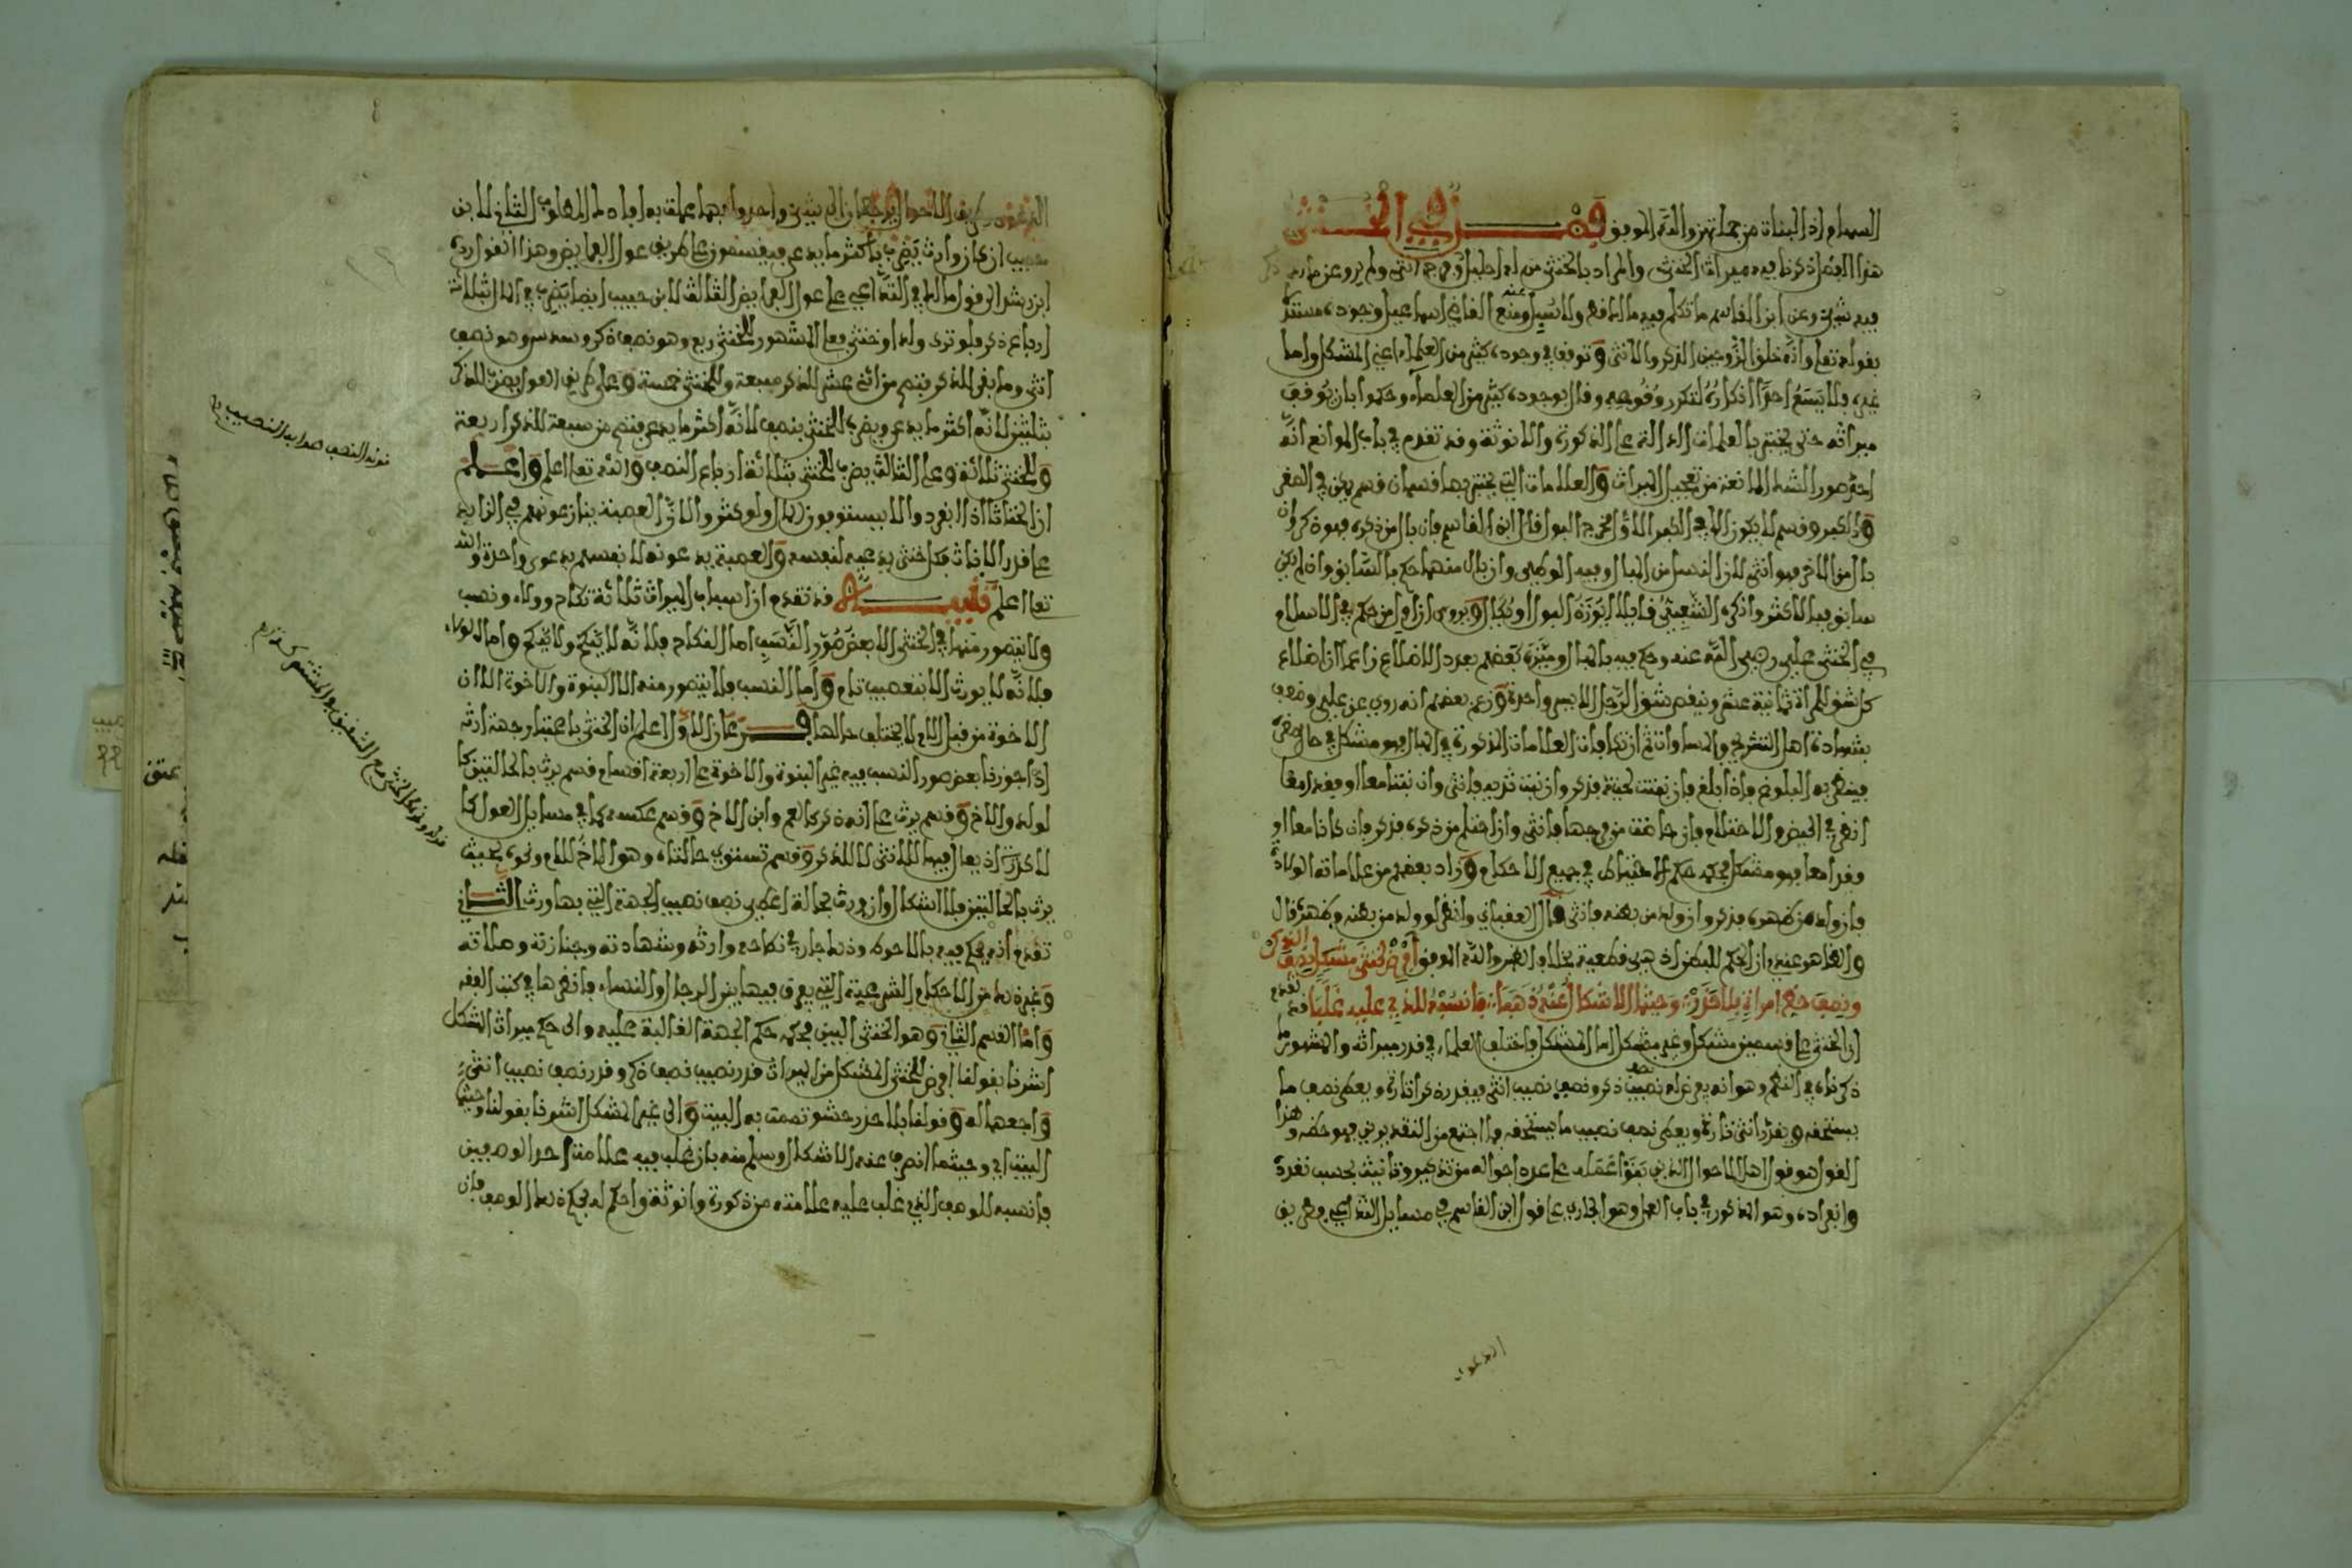 السهام اذ البنات من جهاتهن والله الموفق فصل في الخنثى
هذا الفصل ذكرنا فيه ميراث الخنثى والمراد بالخنثى من له احليل وفرج انثى ولم يرو عن مالك
فيه شيء وعن ابن القاسم ما تكلم فيه مالك ومنع القاضي اسماعيل وجوده مستدلا
بقوله تعالى وانه خلق الزوجين الذكر والانثى وتوقف في وجوده كثير من العلماء اعني المشكل واما
غيره فلا يسع احدا انكاره لتكرر وقوعه وقال بوجوده كثير من العلماء وحكموا بان يوقف
ميراثه حتى يختبر بالعلمات الدالة على الذكورة والانوثة وقد تقدم في باب الموانع انه
احد صور الشك المانعة من تعجيل الميراث والعلامات التي يختبر بها قسمان قسم يكون في الصغر
والكبر وقسم لا يكون الا في الكبر الاول مخرج البول قال ابن القاسم فان بال من ذكره فهو ذكر وان
بال من الاخر فهو انثى لان النسل من المبال وفيه الوطء وان بال منهما حكم بالسابق وان لم يكن
سابق فبالاكثر وانكره الشعبي قايلا ايوزن البول او يكال ويروى ان اول من حكم في الاسلام
في الخنثى علي رضي الله عنه وحكم فيه بالمبال وميزه بعضهم بعدد الاضلاع زاعما ان اضلاع
كل شق للمراة ثمانية عشر وينقص شق الرجل الايسر واحدة وزعم بعضهم انه روي عن علي وضعف
بشهادة اهل التشريح بالمساواة ثم ان تكافات العلامات المذكورة في المبال فهو مشكل في حال الصغر
فينظر به البلوغ فاذا بلغ فان نبتت لحيته فذكر وان نبت ثديه فانثى وان نبتا معا او فقدا معا
انظر في الحيض والاحتلام فان حاضت من فرجها فانثى وان احتلم من ذكره فذكر فان كانا معا او
فقدا معا فهو مشكل فحكمه حكم الاحتياط في جميع الاحكام وزاد بعضهم من علاماته الولادة
فان ولد من ظهره فذكر وان ولد من بطنه فانثى قال العقباني وانظر لو ولد من بطنه وظهره قال
والظاهر عندي ان الحكم للبطن اذ هي قطعية بخلاف الظهر والله الموفق افرض لخنثى مشكل نصف الذكر
ونصف حظ امراة بلا حذر وحيثما الاشكال عنه ذهبا فانسبه للذي عليه غلبا قد تقدم
ان الخنثى على قسمين مشكل وغير مشكل اما المشكل فاختلف العلماء في قدر ميراثه والمشهور ما
ذكرناه في النظم وهو انه يعطى له نصف نصيب ذكر ونصف نصيب انثى فيقدر ذكرا تارة ويعطى نصف ما
يستحقه ويقدر انثى تارة ويعطى نصف نصيب ما يستحقه فما اجتمع من التقديرين فهو حظه وهذا
القول هو قول اهل الاحوال الذين بنوا عمله على عدد احواله من تذكير وتانيث بحسب تعدده
وانفراده وهو المذكور في باب العمل وهو الجاري على قول ابن القاسم في مسايل التداعي وطريق
الدعوى
الدعوى طريق الاحوال
حبيب ان كل وارث يضرب باكثر ما يدعي فيقسمون على طريق عول الفرايض وهذا
الثالث لابن حبيب ايضا يضرب في المال بثلاثة
ارباع ذكر فلو ترك ولدا وخنثى فعلى المشهور للخنثى ربع وهو نصف ذكر وسدس وهو نصف
انثى وما بقي للذكر فتصح من اثني عشر للذكر سبعة وللخنثى خمسة وعلى طريق العول يضرب للذكر
بثلثين لانه اكثر ما يدعي ويضرب للخنثى بنصف لانه اكثر ما يدعي فتصح من سبعة للذكر اربعة
وللخنثى ثلاثة وعلى الثالث يضرب للخنثى بثلاثة ارباع النصف والله تعالى اعلم واعلم
ان الخناثا اذا انفردوا لا يستوعبون المال ولو كثروا لان العصبة ينازعونهم في الزايد
على قدر الاناث فكل خنثى يدعيه لنفسه والعصبة يدعونه لانفسهم بدعوى واحدة والله
تعالى اعلم تنبيه قد تقدم ان اسباب الميراث ثلاثة نكاح وولاء ونسب
ولا يتصور منها في الخنثى الا بعض صور النسب اما النكاح فلانه لا ينكح ولا ينكح واما الولاء
فلانه لا يورث الا بتعصيب تام واما النسب فلا يتصور منه الا البنوة والاخوة الا ان
الاخوة من قبل الام لا يختلف حالها فرعان الاول اعلم ان الخنثى باعتبار جهة ارثه
اذا جوزنا بعض صور النسب فيه غير البنوة والاخوة على اربعة اقسام قسم يرث بالحالتين كا
لولد والاخ وقسم يرث على انه ذكر كالعم وابن الاخ وقسم عكسه كما في مسايل العول كا
لاكدرية اذ يعال فيها للانثى لا للذكر وقسم تستوي حالتاه وهو الاخ للام ونحوه بحيث
يرث بالحالتين فلا اشكال وان ورث بحالة اعطي نصف نصيب الجهة التي بها ورث الثاني
تقدم انه يحكم فيه بالاحوط وذلك جار في نكاحه وارثه وشهادته وجنازته وصلاته
وغير ذلك من الاحكام الشرعية التي يفرق فيها بين الرجال والنساء فانظرها في كتب الفقه
واما القسم الثاني وهو الخنثى البين فحكمه حكم الجهة الغالبة عليه والى حكم ميراث المشكل
اشرنا بقولنا افرض للخنثى المشكل من الميراث قدر نصيب نصف ذكر وقدر نصف نصيب انثى
واجمعهما له وقولنا بلا حذر حشو تممت به البيت والى غير المشكل اشرنا بقولنا وحيثما
البيت اي وحيثما انصرف عنه الاشكال وسلم منه بان غلب فيه علامة احد الوصفين
فانسبه للوصف الذي غلب عليه علامته من ذكورة وانوثة واحكم له بحكم ذلك الوصف فان